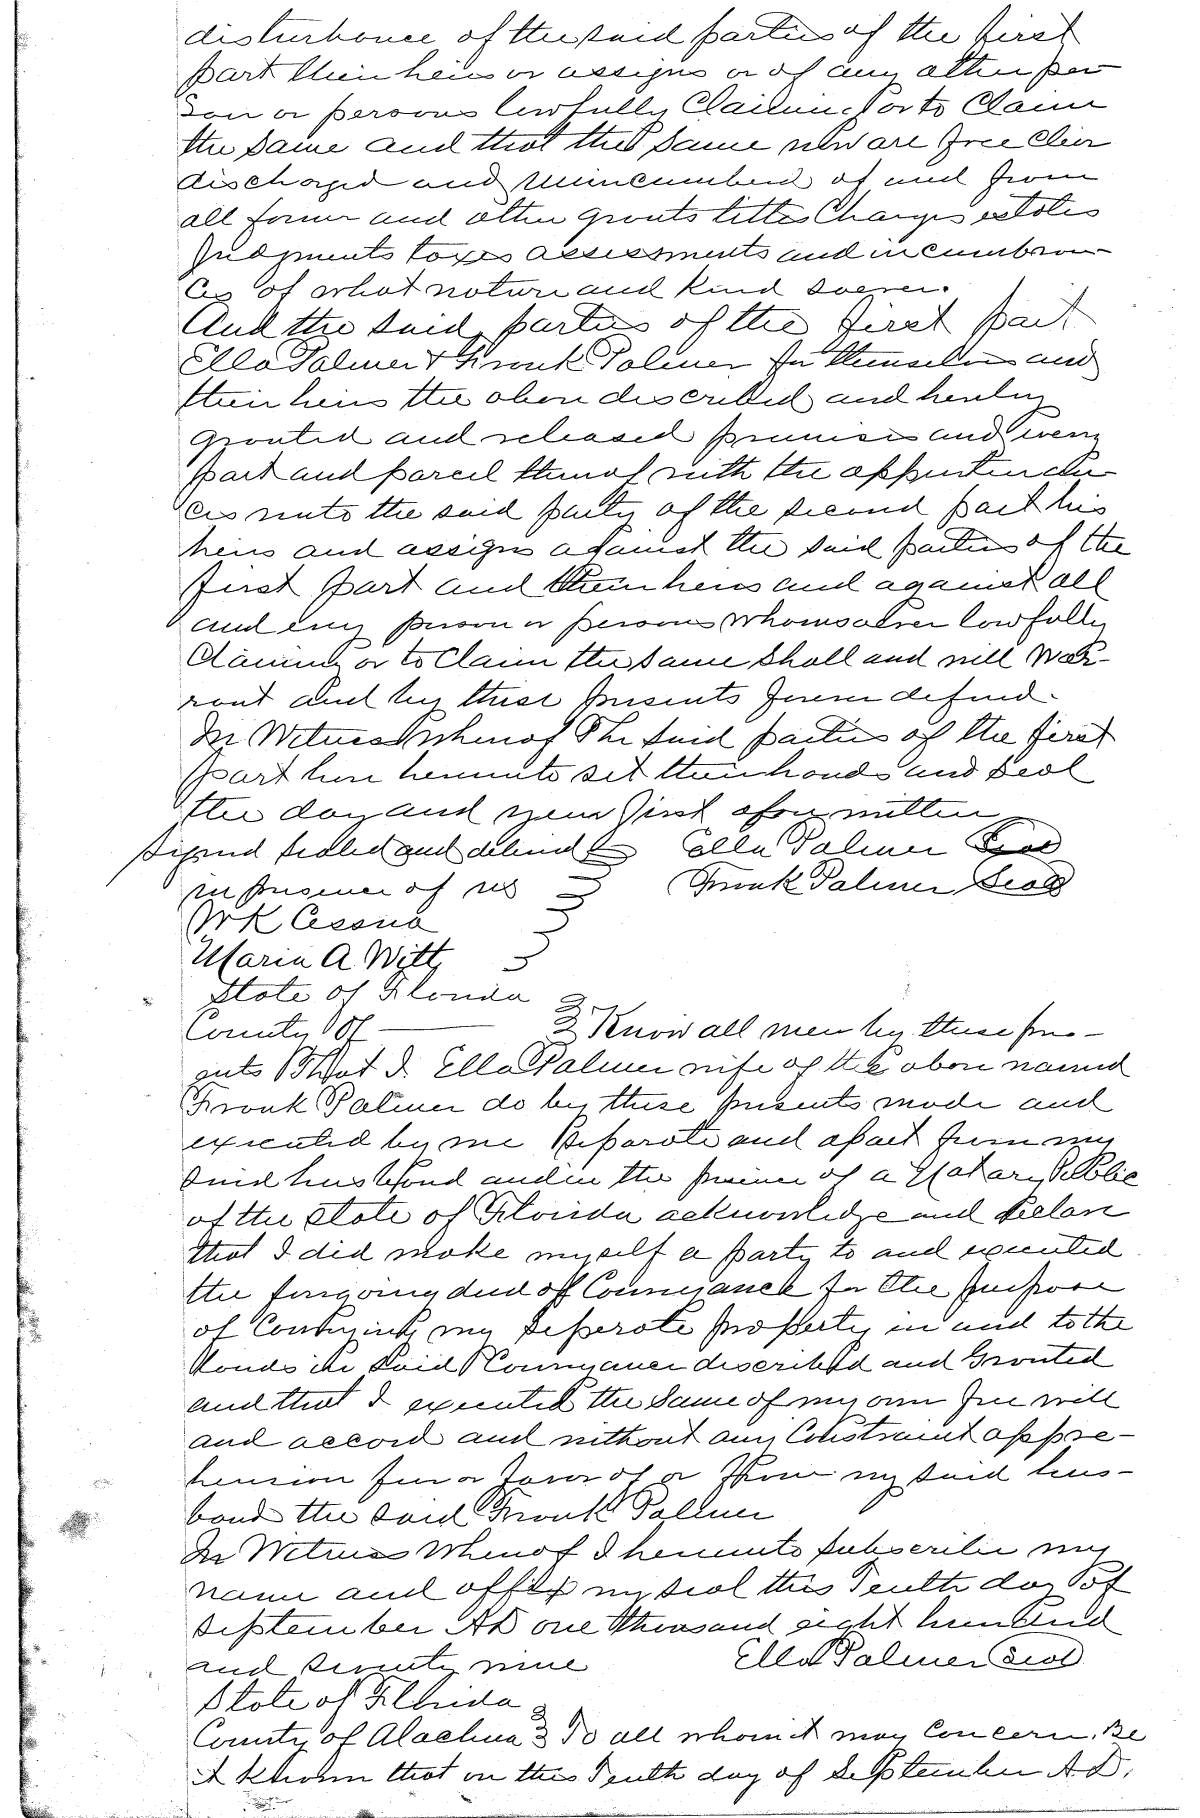 disturbance of the said parties of the first
part their heirs or assigns or of any other per
son or persons lawfully Claiming or to Claim
the same and that the same now are free clear
discharged and unincumberd of and from
all former and other grants titles Charges estates
Judgments taxes assessments and incumbran-
ces of what nature and kind soever.
And the said parties of the first part
Ella Palmer & Frank Palmer for themselves and
their heirs the above described and hereby
granted and released premises and every
part and parcel thereof with the appurtenan
ces unto the said party of the second part his
heirs and assigns against the said parties of the
first part and their heirs and against all
and every person or persons whomsoever lawfully
Claiming or to Claim the same shall and will War-
rant and by these presents forever defend.
In Witness Whereof The said parties of the first
part have hereunto set their hands and seal
the day and year first afore written
Signed sealed and deliverd Ella Palmer Seal
in presence of us Frank Palmer Seal
W K Cessna
Maria A Witt
State of Florida
County of — Know all men by these pres-
ents That I Ella Palmer wife of the above named
Frank Palmer do by these presents made and
executed by me Separate and apart from my
said husband and in the presence of a Notary Public
of the State of Florida acknowledge and declare
that I did make myself a party to and executed
the foregoing deed of Conveyance for the purpose
of Conveying my seperate property in and to the
lands in said Conveyance described and Granted
and that I executed the same of my own free will
and accord and without any Constraint appre-
hension fear or favor of or from my said hus-
band the said Frank Palmer
In Witness Whereof I hereunto subscribe my
name and affix my seal this Tenth day of
September AD one thousand eight hundred
and seventy nine Ella Palmer Seal
State of Florida
County of Alachua To all whom it may Concern. Be
it known that on this Tenth day of September A.D.